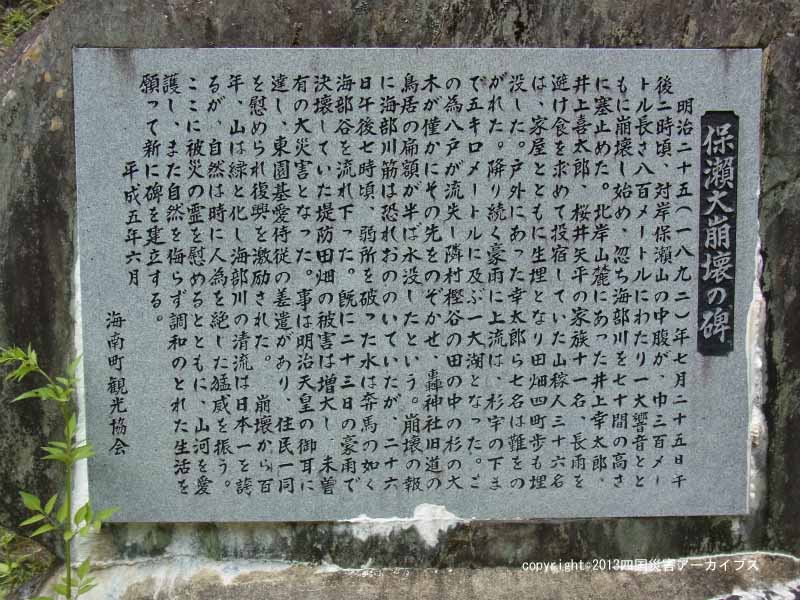 保瀬大崩壊の碑
明治二十五(一八九二)年七月二十五日午
後二時頃、対岸保瀬山の中腹が、巾三百メー
トル長さ八百メートルにわたり一大響音とと
もに崩壊し始め、忽ち海部川を七十間の高さ
に塞止めた。北岸山麓にあった井上幸太郎、
井上喜太郎、桜井矢平の家族十一名、長雨を
避け食を求めて投宿していた山稼人三十六名
は、家屋とともに生埋となり田畑四町歩も埋
没した。戸外にあった幸太郎ら七名は難をの
がれた。降り続く豪雨に上流は、杉宇の下ま
で五キロメートルに及ぶ一大湖となった。こ
の為八戸が流失し隣村樫谷の田の中の杉の大
木が僅かにその先をのぞかせ、轟神社旧道の
鳥居の扁額が半ば水没したという。崩壊の報
に海部川筋は恐れおののいていたが、二十六
日午後七時頃、弱所を破った水は奔馬の如く
海部谷を流れ下った。既に二十三日の豪雨で
決壊していた堤防田畑の被害は増大し、未曽
有の大災害となった。事は明治天皇の御耳に
達し、東園基愛侍従の差遣があり、住民一同
を慰められ復興を激励された。　崩壊から百
年、山は緑と化し海部川の清流は日本一を誇
るが、自然は時に人為を絶した猛威を振う。
ここに被災の霊を慰めるとともに、山河を愛
護し、また自然を侮らず調和のとれた生活を
願って新に碑を建立する。
平成五年六月
海南町観光協会
copyright:2013四国災害アーカイブス